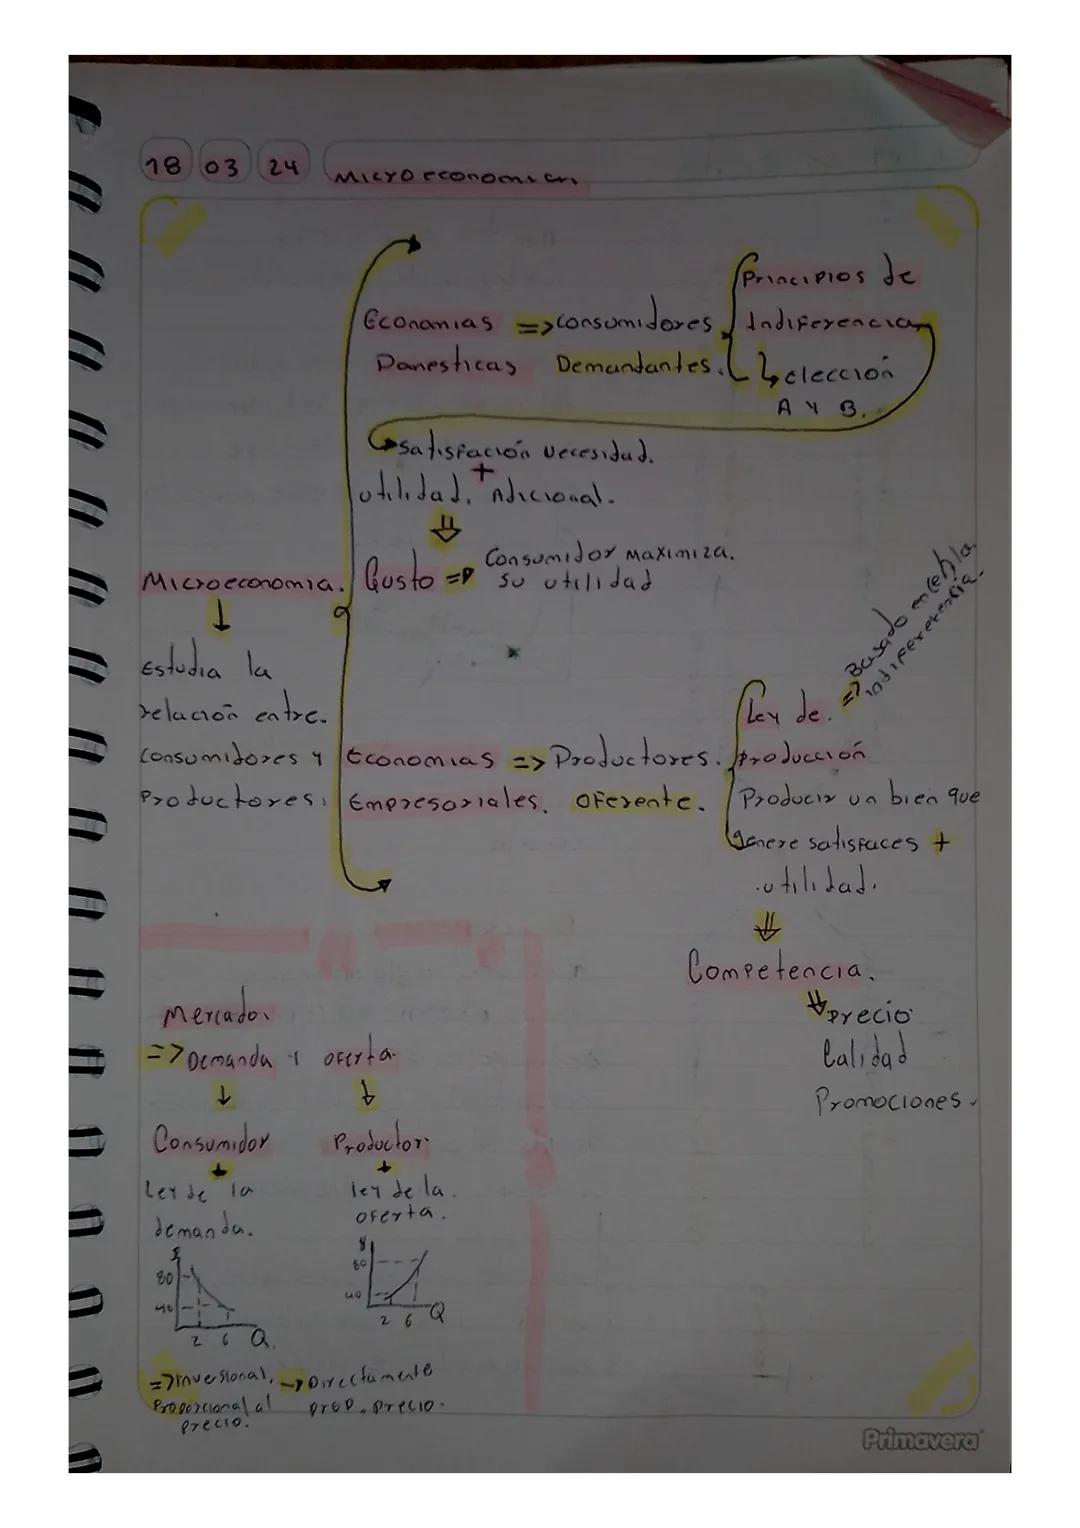 18 03 24 Microeconomia
Principios de
Economias => consumidores Indiferencia
Domesticas Demandantes. elección
A y B.
satisfación Necesidad.
+
utilidad. Adicional.
Consumidor maximiza.
Microeconomia. Gusto => su utilidad
Basado en la
indiferencia.
Estudia la
relación entre.
consumidores y
productores.
Ley de. =>
Economias => Productores. producción
Empresariales. oferente. Producir un bien que
genere satisfaces +
utilidad.
Competencia.
Mercado.
Precio
=> Demanda y oferta.
Calidad
Promociones.
Consumidor Productor.
Ley de la ley de la.
demanda. oferta.
$ $
80 80
40 40
2 6 Q. 2 6 Q
=> Inversional, -> Directamente
Proporcional al prop. precio.
precio.
Primavera